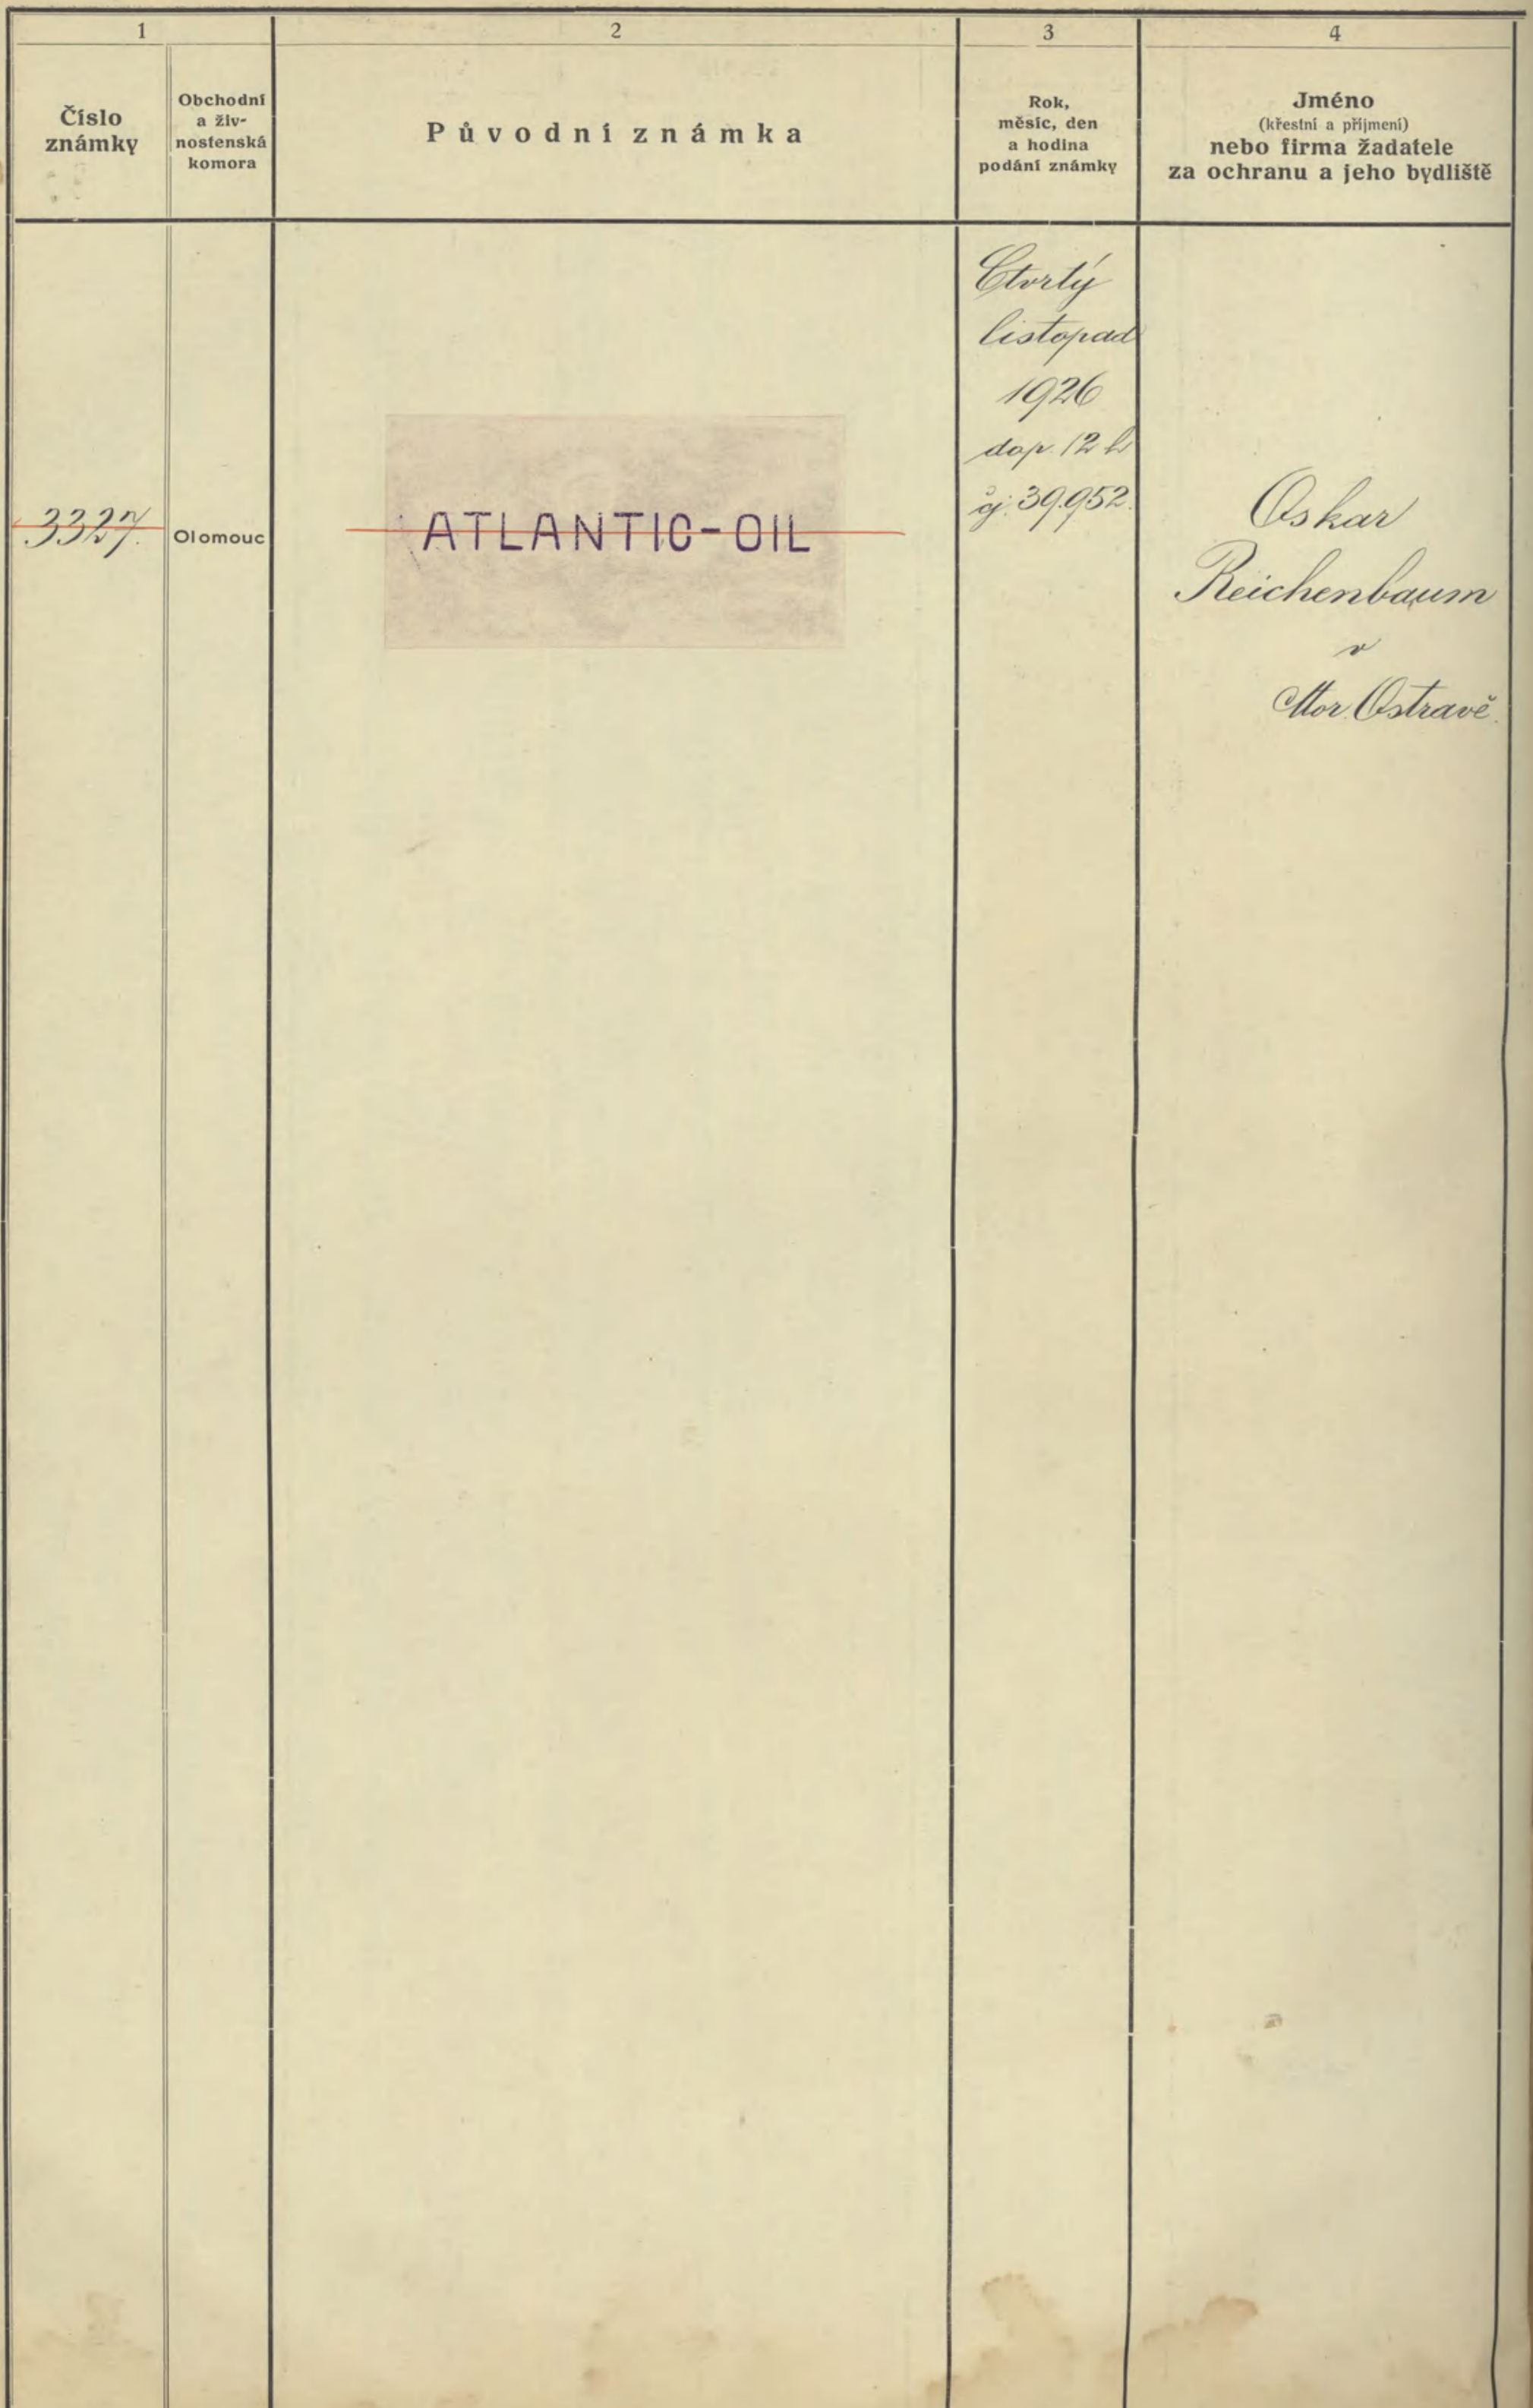 1
2
3
4
Číslo
známky
Obchodní
a živ-
nostenská
komora
Původní známka
Rok,
měsíc, den
a hodina
podání známky
Jméno
(křestní a příjmení)
nebo firma žadatele
za ochranu a jeho bydliště
3327.
Olomouc
ATLANTIC-OIL
Čtvrtý
listopad
1926
dop. 12 h
čj: 39.952.
Oskar
Reichenbaum
v
Mor. Ostravě.